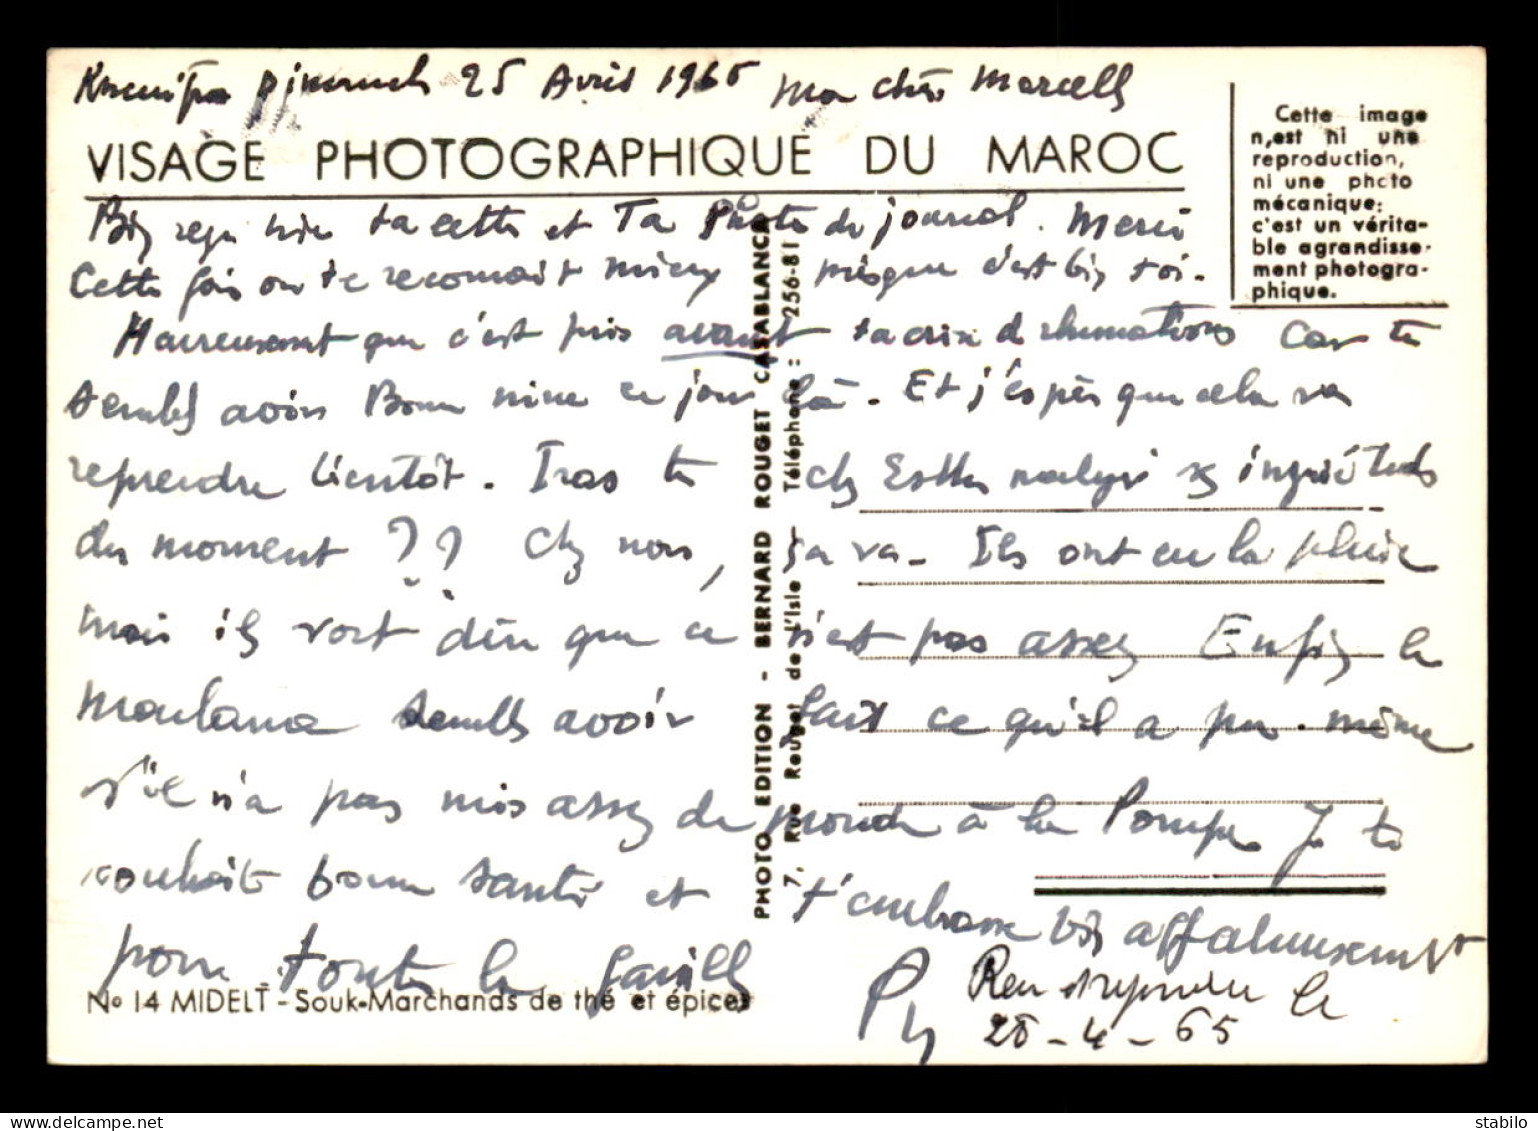 Dimanch 25 Avril 1965 Ma chère Marcelle
VISAGE PHOTOGRAPHIQUE DU MAROC
Cette image
n,est ni une
reproduction,
ni une photo
mécanique;
c'est un vérita-
ble agrandisse-
ment photogra-
phique.
Bien reçu hier ta lettre et Ta Photo du journal. Merci
Cette fois on te reconnait mieux puisque c'est bien toi.
Heureusement que c'est pris avant ta crise de rhumatismes Car tu
sembles avoir Bonne mine ce jour là. Et j'espère que cela va
reprendre bientôt. Iras tu chez Esther malgré les inquiétudes
du moment ?? Chez nous, ça va. Ils ont eu la pluie
mais ils vont dire que ce n'est pas assez Enfin le
semble avoir fait ce qu'il a pu. même
s'il n'a pas mis assez de monde à la Pompe Je te
souhaite bonne santé et t'embrasse bien affectueusement
pour toute la famille
Rendrépondu le
28-4-65
No 14 MIDELT - Souk-Marchands de thé et épices
PHOTO EDITION - BERNARD ROUGET CASABLANCA
7, Rue Rouget de L'Isle - Téléphone : 256-81
stabilo
delcampe.net